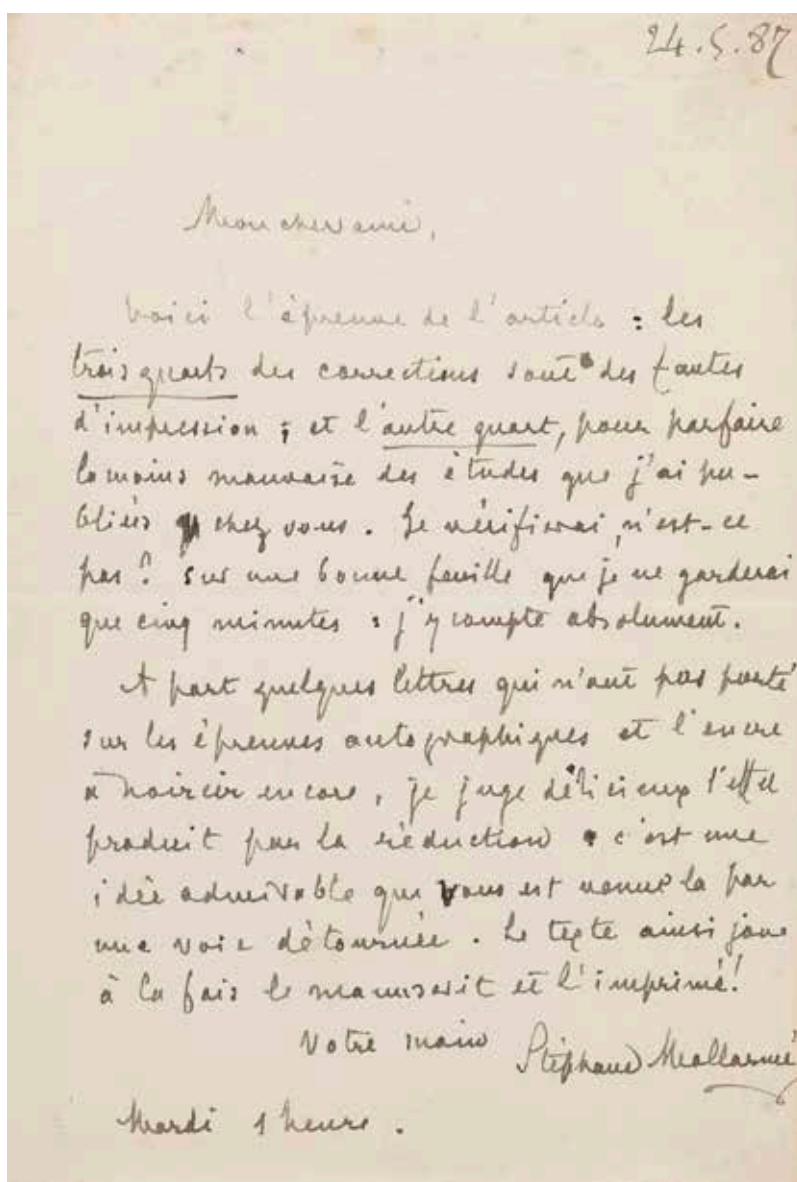 24.5.87
Mon cher ami,
Voici l'épreuve de l'article : les
trois quarts des corrections sont des fautes
d'impression ; et l'autre quart, pour parfaire
la moins mauvaise des études que j'ai pu-
bliées chez vous. Je vérifierai, n'est-ce
pas ? sur une bonne feuille que je ne garderai
que cinq minutes : j'y compte absolument.
A part quelques lettres qui n'ont pas porté
sur les épreuves autographiques et l'encre
à noircir encore, je juge délicieux l'effet
produit par la réduction : c'est une
idée admirable qui vous est venue là par
une voie détournée. Le texte ainsi joue
à la fois le manuscrit et l'imprimé !
Votre main Stéphane Mallarmé
Mardi 1 heure.